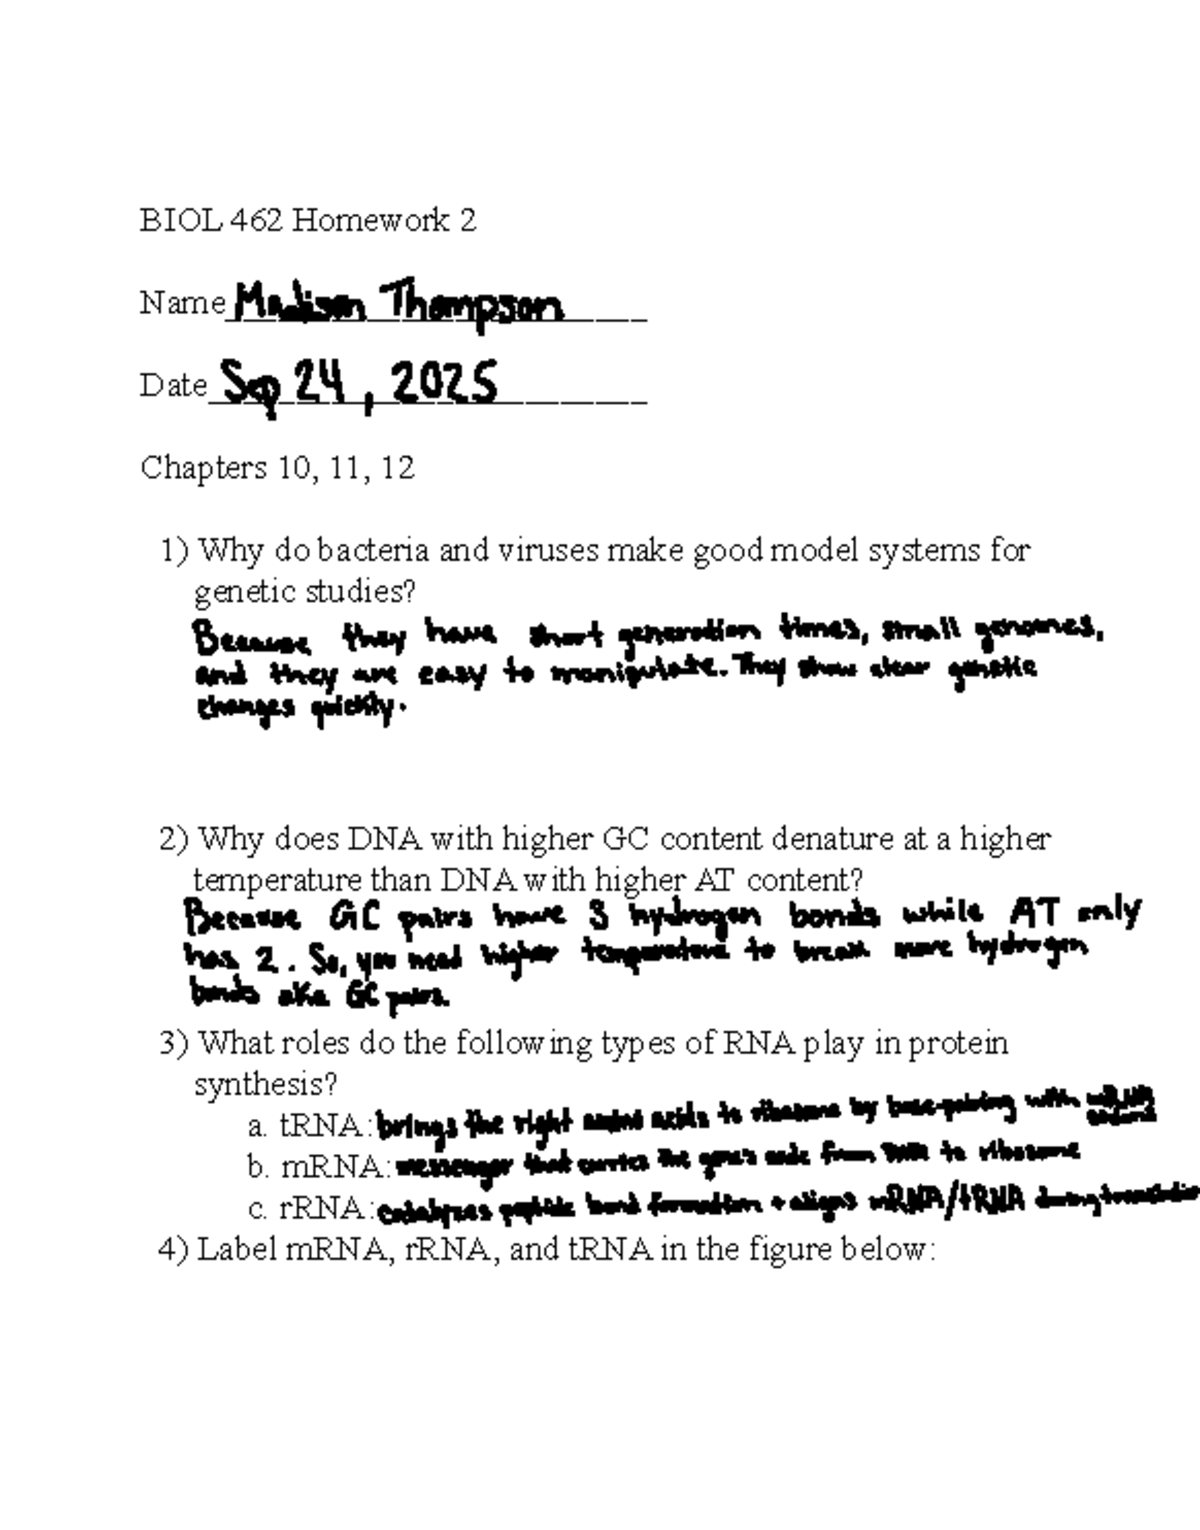 BIOL 462 Homework 2
Name Madison Thompson
Date Sep 24, 2025
Chapters 10, 11, 12
1) Why do bacteria and viruses make good model systems for
genetic studies?
Because they have short generation times, small genomes,
and they are easy to manipulate. They show clear genetic
changes quickly.
2) Why does DNA with higher GC content denature at a higher
temperature than DNA with higher AT content?
Because GC pairs have 3 hydrogen bonds while AT only
has 2. So, you need higher temperature to break more hydrogen
bonds aka GC pairs.
3) What roles do the following types of RNA play in protein
synthesis?
a. tRNA: brings the right amino acids to ribosome by base-pairing with mRNA
codons
b. mRNA: messenger that carries the gene's code from DNA to ribosome
c. rRNA: catalyzes peptide bond formation + aligns mRNA/tRNA during
4) Label mRNA, rRNA, and tRNA in the figure below: